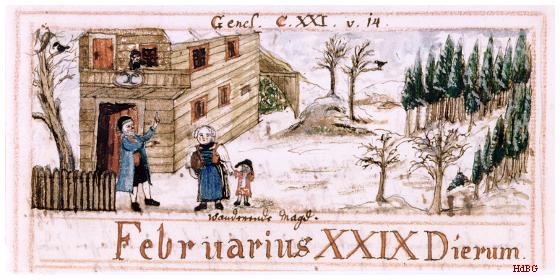 Genes. C. XXI. v. 14.
wanderende Magd.
Februarius XXIX Dierum.
HdBG